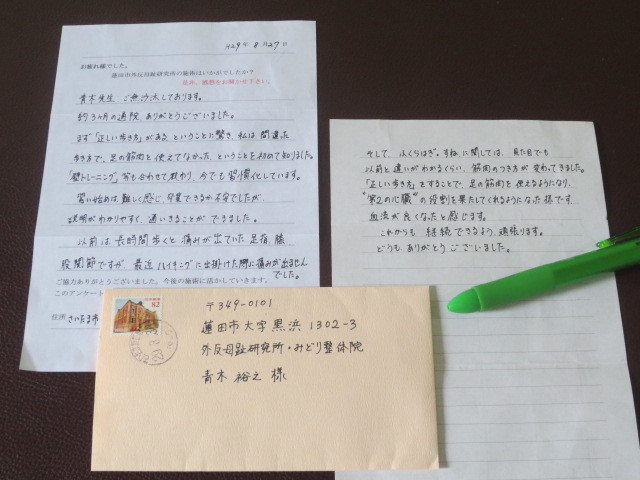 H29年 8月27日
お疲れ様でした。
蓮田市外反母趾研究所の施術はいかがでしたか?
是非、感想をお聞かせ下さい。
青木先生 ご無沙汰しております。
約3ヵ月の通院 ありがとうございました。
まず「正しい歩き方」がある ということに驚き、私は 間違った
歩き方で、足の筋肉を 使えてなかった ということを 初めて知りました。
「壁トレーニング」等も合わせて教わり、今でも 習慣化しています。
習い始めは 難しく感じ 卒業できるか不安でしたが
説明がわかりやすく 通いきることが できました。
以前は 長時間 歩くと 痛みが出ていた 足首、膝
股関節ですが 最近 ハイキングに出掛けた際に痛みが出ません
でした。
ご協力ありがとうございました。今後の施術に活かしていきます。
このアンケート
住所 さいたま市
そして、ふくらはぎ、すねに関しては、見た目でも
以前と違いがわかるくらい、筋肉のつき方が 変わってきました。
「正しい歩き方」をすることで、足の筋肉を使えるようになり、
"第2の心臓"の役割を果たしてくれるようになった様です。
血流が良くなったと感じます。
これからも 継続できるよう、頑張ります。
どうも ありがとうございました。
82
〒349-0101
蓮田市大字黒浜1302-3
外反母趾研究所・みどり整体院
青木 裕之 様